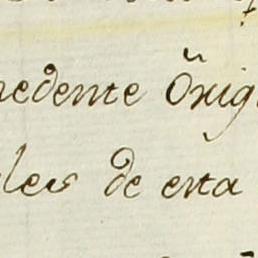 nedente Õrig
les de esta